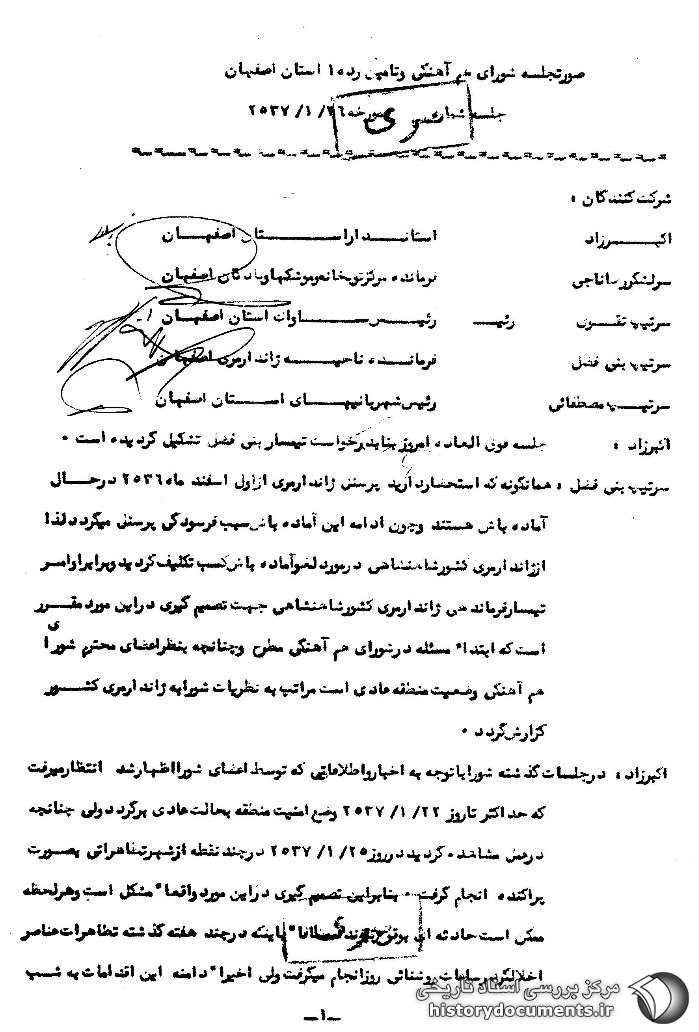 صورتجلسه شورای هم آهنگی وتامین رده ۱ استان اصفهان
جلسه شماره مورخه ۲۶/ ۱/ ۲۵۳۷
سری
شرکت کنندگان :
اکبرزاد استاندار استان اصفهان
سرلشکررضا ناجی فرمانده مرکزتوپخانه وموشکهاوپادگان اصفهان
سرتیپ تقوی رئیس رئیس ساواک استان اصفهان
سرتیپ بنی فضل فرمانده ناحیه ژاندارمری اصفهان
سرتیپ مصطفائی رئیس شهربانیهای استان اصفهان
اکبرزاد : جلسه فوق العاده امروز بنابدرخواست تیمسار بنی فضل تشکیل گردیده است .
سرتیپ بنی فضل : همانگونه که استحضاردارید پرسنل ژاندارمری ازاول اسفند ماه ۲۵۳۶ درحال
آماده باش هستند وچون ادامه این آماده باش سبب فرسودگی پرسنل میگردد لذا
اززاندارمری کشورشاهنشاهی درمورد لغوآماده باش کسب تکلیف گردید وبرابراوامر
تیمسارفرماندهی ژاندارمری کشورشاهنشاهی جهت تصمیم گیری دراین مورد مقرر
است که ابتدا" مسئله درشورای هم آهنگی مطرح وچنانچه بنظراعضای محترم شورای
هم آهنگی وضعیت منطقه عادی است مراتب به نظریات شورابه ژاندارمری کشور
گزارش گردد .
اکبرزاد : درجلسات گذشته شورا باتوجه به اخبارواطلاعاتی که توسط اعضای شورا اظهارشد انتظارمیرفت
که حداکثر تاروز ۲۲/ ۱/ ۲۵۳۷ وضع امنیت منطقه بحالت عادی برگردد ولی چنانچه
درعمل مشاهده گردید درروز ۲۵/ ۱/ ۲۵۳۷ درچند نقطه ازشهرتظاهراتی بصورت
پراکنده انجام گرفت . بنابراین تصمیم گیری دراین مورد واقعا" مشکل است وهرلحظه
ممکن است حادثه ای بوقوع بپیوندد بااینکه درچند هفته گذشته تظاهرات عناصر
سری
اخلالگردرساعات روشنائی روزانجام میگرفت ولی اخیرا" دامنه این اقدامات به شب
-۱-
مرکز بررسی اسناد تاریخی
historydocuments.ir